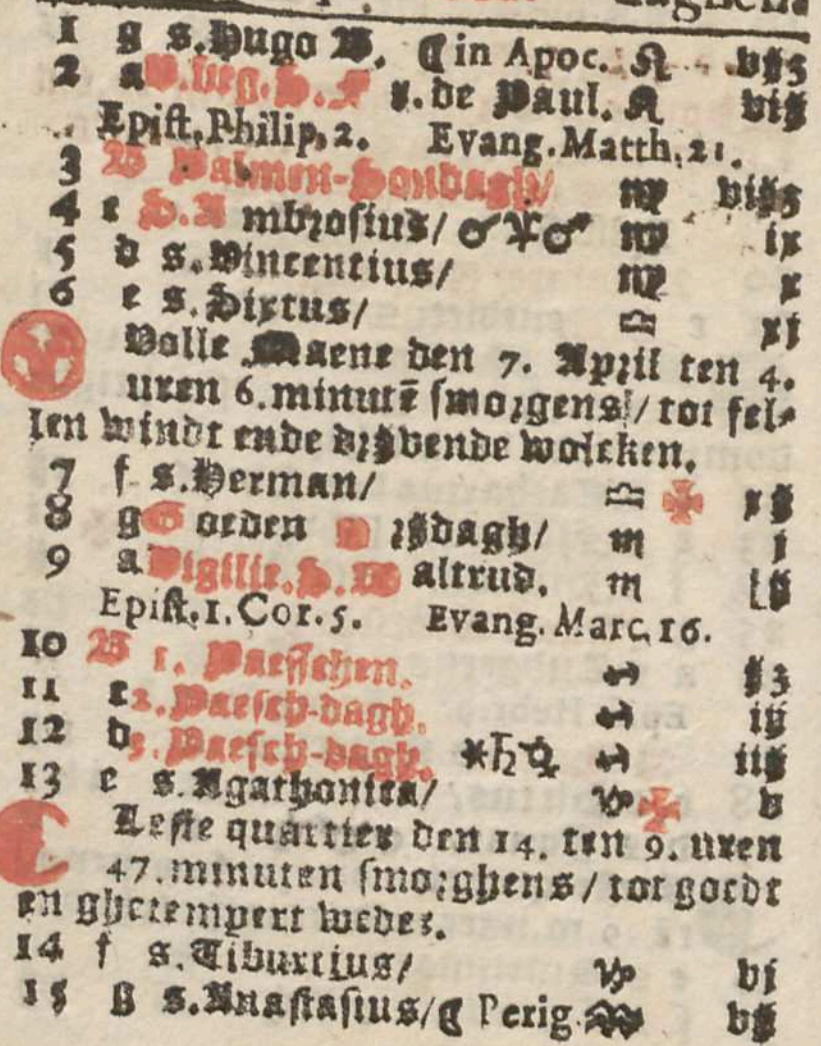 1 g s. Hugo B. ☾ in Apoc. ♌ vij3
2 a V. Lieg. H. F r. de Paul. ♌ vij
Epist. Philip. 2. Evang. Matth. 21.
3 B Palmen-Sondagh/ ♍ viij3
4 c H. Ambrosius/ ♂ ♍ ix
5 d s. Vincentius/ ♍ x
6 e s. Sixtus/ ♎ xj
Volle Maene den 7. April ten 4.
uren 6. minutē smorgens/ tot fel-
len windt ende drijvende wolcken.
7 f s. Herman/ ♎ ✠ xij
8 g Goeden Vrijdagh/ ♏ j
9 a Vigilie. H. Waltrud. ♏ ij
Epist. 1. Cor. 5. Evang. Marc. 16.
10 B 1. Paesschen. ♐ ij3
11 c 2. Paesch-dagh. ♐ iij
12 d 3. Paesch-dagh. ⚹♄☿ ♐ iiij
13 e s. Agathonica/ ♑ ✠ v
Leste quartier den 14. ten 9. uren
47. minuten smorghens/ tot goedt
en ghetempert weder.
14 f s. Tiburtius/ ♑ vj
15 g s. Anastasius/ ☾ Perig. ♒ vij